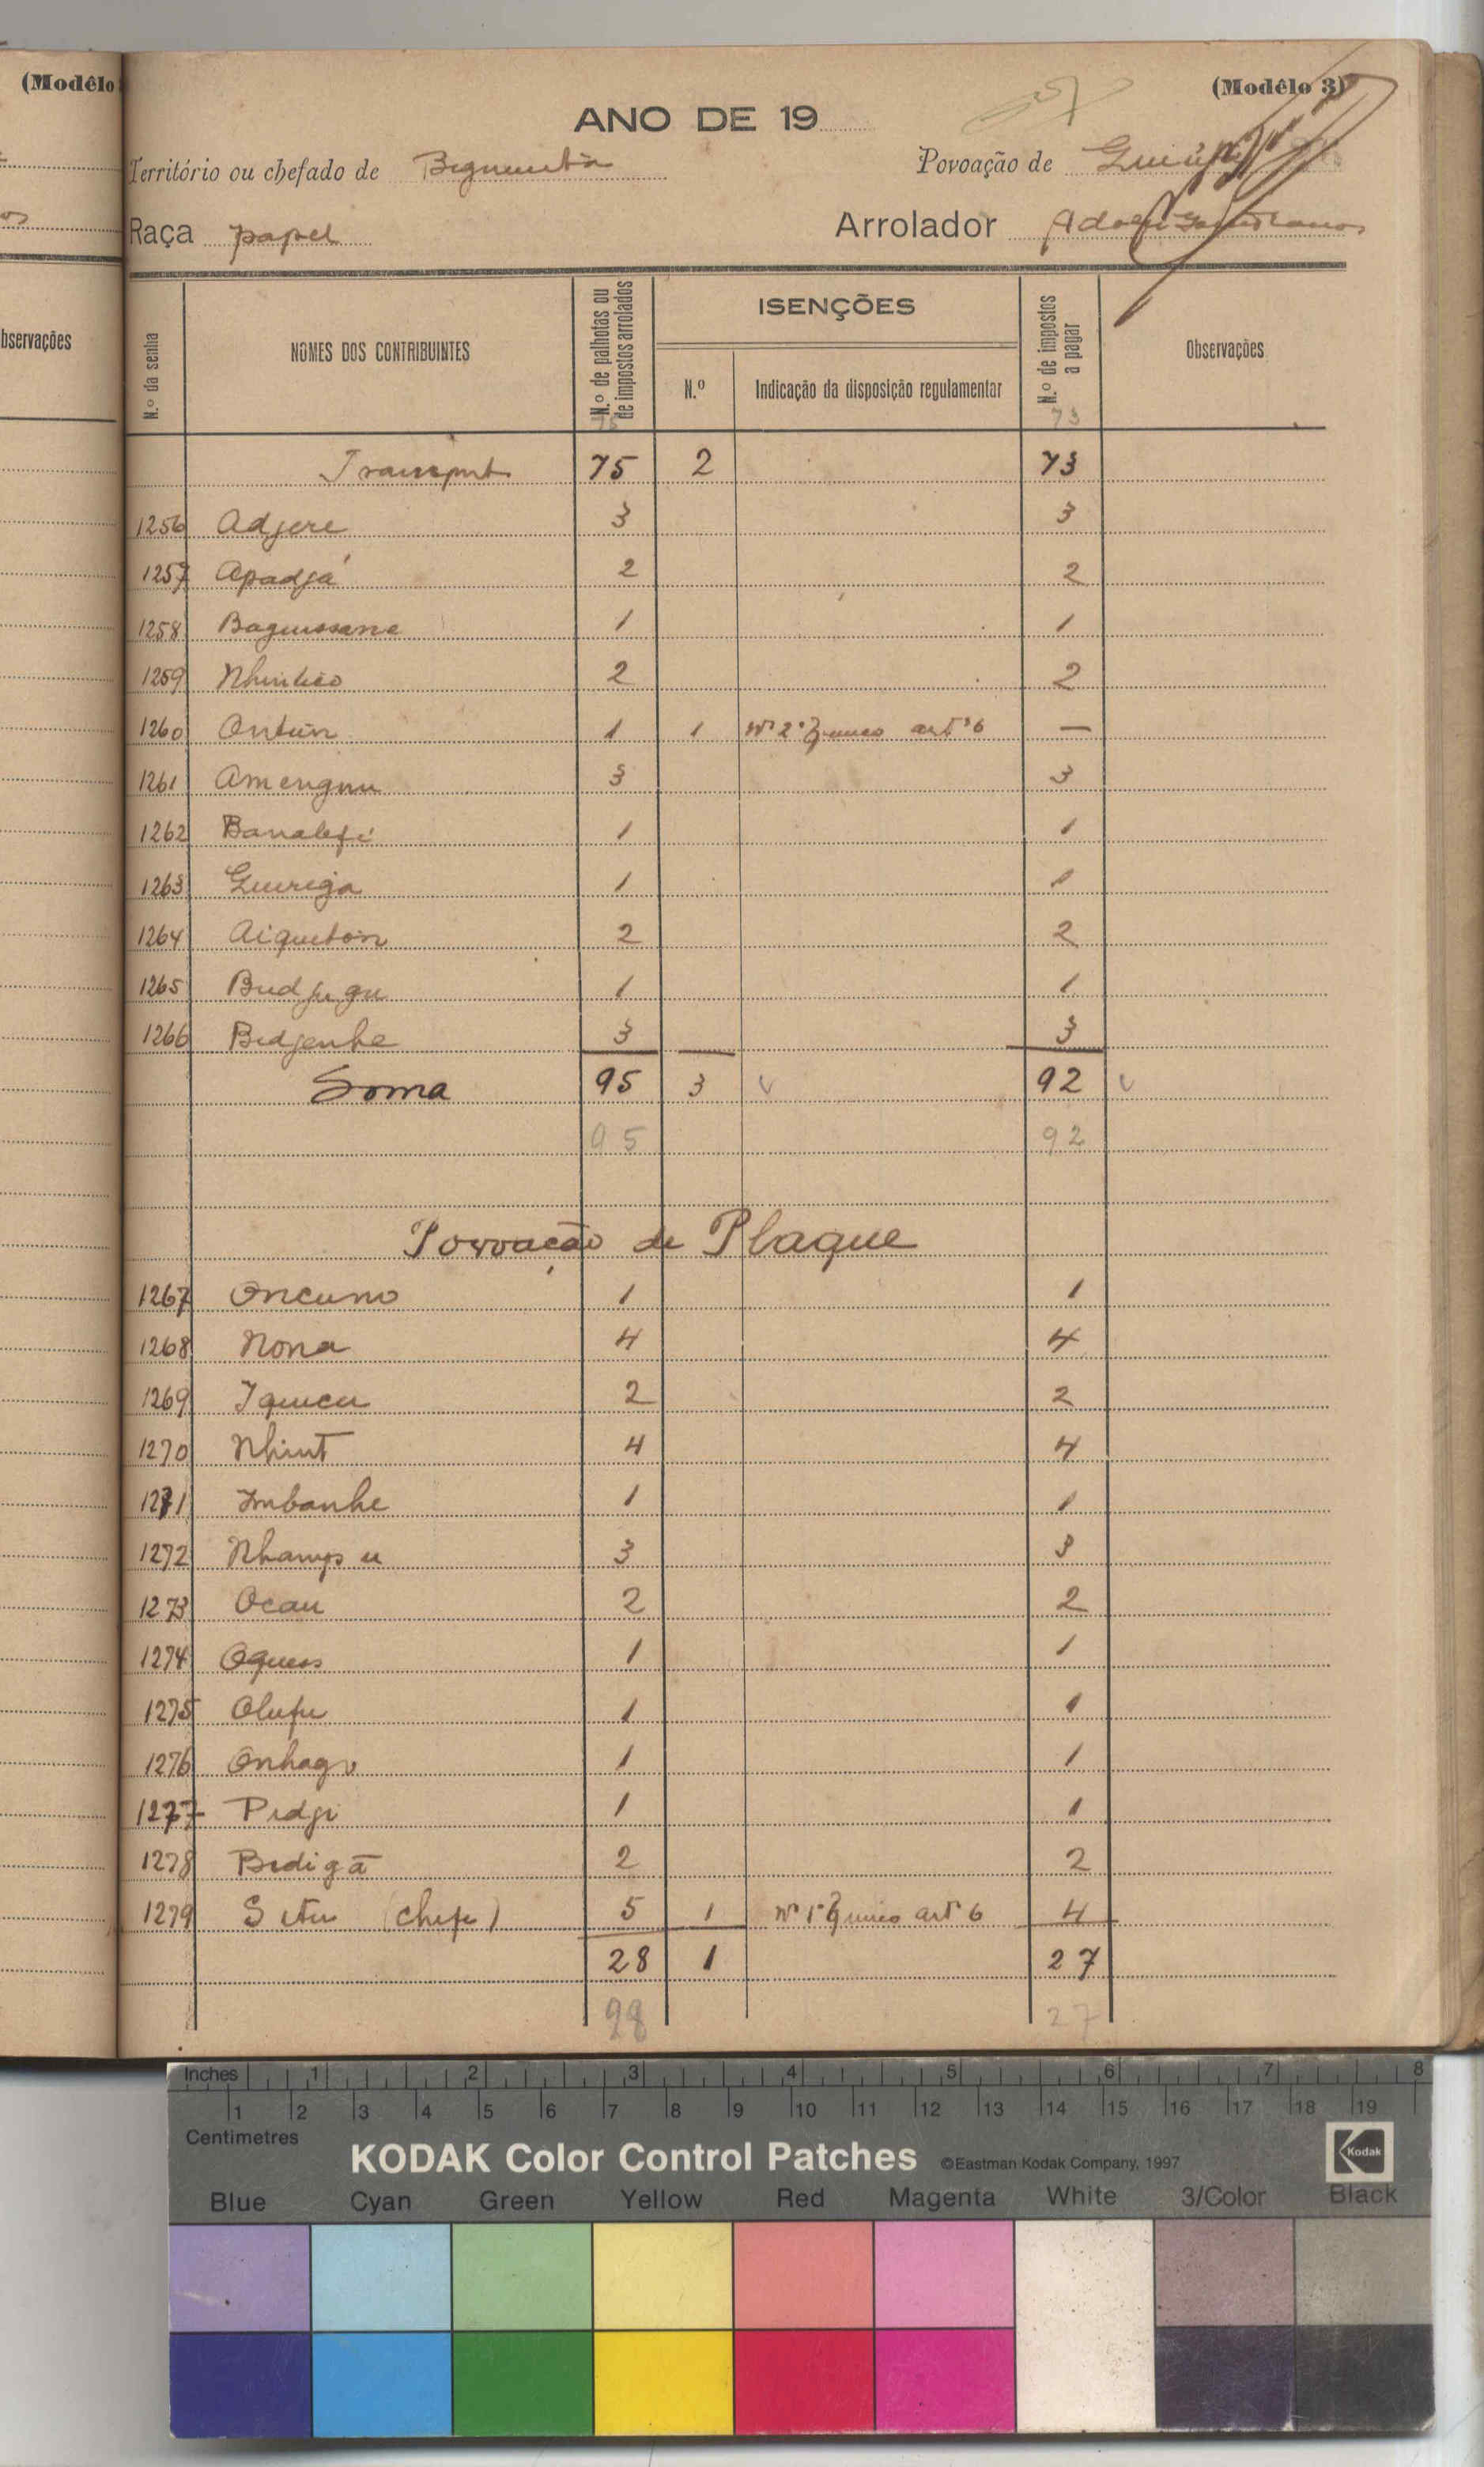 (Modêlo
(Modêlo 3)
ANO DE 19
Território ou chefado de
Povoação de
Raça papel
Arrolador
bservações
N.º da senha
NOMES DOS CONTRIBUINTES
N.º de palhotas ou de impostos arrolados
ISENÇÕES
N.º
Indicação da disposição regulamentar
N.º de impostos a pagar
Observações
75 73
Transport 75 2 73
1256 Adjere 3 3
1257 Apadjá 2 2
1258 Baguissane 1 1
1259 2 2
1260 Ontún 1 1 Nº 2º § unico artº 6 —
1261 Amengnu 3 3
1262 Banalefé 1 1
1263 Guiriga 1 1
1264 Aiquiton 2 2
1265 1 1
1266 Bidjenhe 3 3
Soma 95 3 92
95 92
Povoação de Plaque
1267 Oncuno 1 1
1268 Nona 4 4
1269 Iquicu 2 2
1270 Nhint 4 4
1271 Imbanhe 1 1
1272 3 3
1273 Ocau 2 2
1274 1 1
1275 Olufu 1 1
1276 1 1
1277 Pidji 1 1
1278 Bidigã 2 2
1279 (chefe) 5 1 Nº 1º § unico artº 6 4
28 1 27
28 27
Inches 1 2 3 4 5 6 7 8
1 2 3 4 5 6 7 8 9 10 11 12 13 14 15 16 17 18 19
Centimetres
KODAK Color Control Patches ©Eastman Kodak Company, 1997 Kodak
Blue Cyan Green Yellow Red Magenta White 3/Color Black